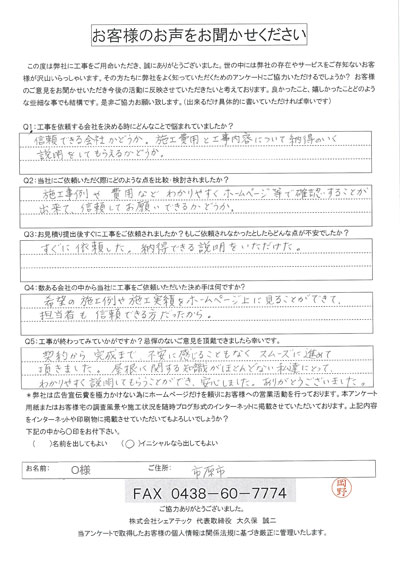 お客様のお声をお聞かせください
この度は弊社に工事をご用命いただき、誠にありがとうございました。世の中には弊社の存在やサービスをご存知ないお客
様が沢山いらっしゃいます。その方たちに弊社をよく知っていただくためのアンケートにご協力いただけるでしょうか? お客様
のご意見をお聞かせいただき今後の活動に反映させていきたいと考えております。良かったこと、嬉しかったことどのよう
な些細な事でも結構です。是非ご協力お願い致します。(出来るだけ具体的に書いていただければ幸いです)
Q1:工事を依頼する会社を決める時にどんなことで悩まれていましたか?
信頼できる会社かどうか。施工費用と工事内容について納得のいく
説明をしてもらえるかどうか。
Q2:当社にご依頼いただく際にどのような点を比較・検討されましたか?
施工事例や費用など わかりやすくホームページ等で確認することが
出来て、信頼してお願いできるかどうか。
Q3:お見積り提出後すぐに工事をご依頼されましたか?もしご依頼されなかったとしたらどんな点が不安でしたか?
すぐに依頼した。納得できる説明をいただけた。
Q4:数ある会社の中から当社に工事をご依頼いただいた決め手は何ですか?
希望の施工例や施工実績をホームページ上に見ることができて、
担当者も信頼できる方だったから。
Q5:工事が終わってみていかがですか?忌憚のないご意見を頂戴できましたら幸いです。
契約から完成まで 不安に感じることもなく スムーズに進めて
頂きました。屋根に関する知識がほとんどない私達にとって、
わかりやすく説明してもらうことができ、安心しました。ありがとうございました。
*弊社は広告宣伝費を極力かけない為にホームページだけを頼りにお客様への営業活動を行っております。本アンケート
用紙またはお客様宅の調査風景や施工状況を随時ブログ形式のインターネットに掲載させていただいております。上記内容
をインターネットや印刷物に掲載させていただいてもよろしいでしょうか?
下記の中から〇印をお付下さい。
( )名前を出してもよい (〇)イニシャルなら出してもよい
お名前: O様 ご住所: 市原市
FAX 0438-60-7774
岡野
ご協力ありがとうございました。
株式会社シェアテック 代表取締役 大久保 誠二
当アンケートで取得したお客様の個人情報は関係法規に基づき厳正に管理いたします。